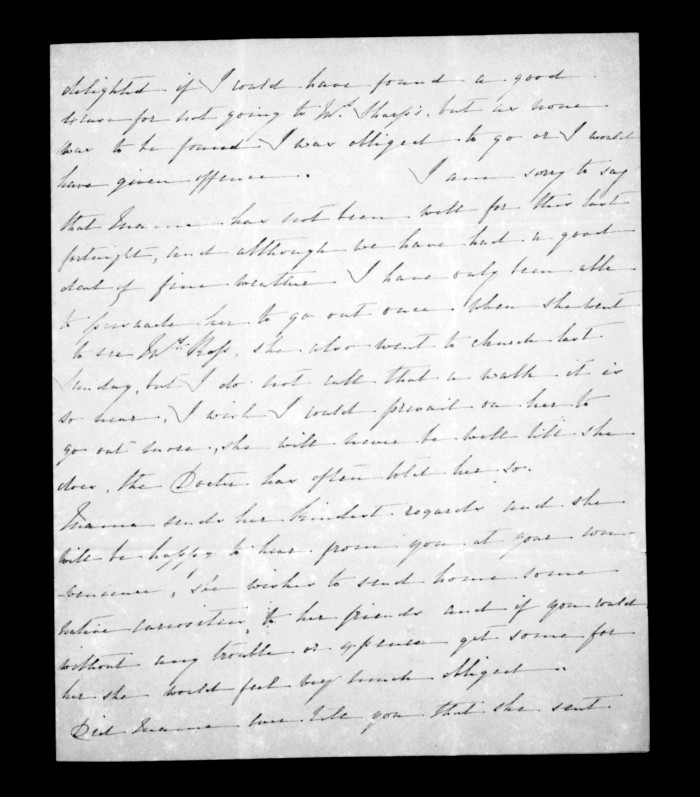 delighted if I could have found a good
excuse for not going to Mrs. Sharp's, but as none
was to be found I was obliged to go or I would
have given offence. I am sorry to say
that Mama has not been well for this last
fortnight, and although we have had a good
deal of fine weather I have only been able
to persuade her to go out once when she went
to see Mrs. Ross, she also went to church last
Sunday, but I do not call that a walk it is
so near, I wish I could prevail on her to
go out more, she will never be well till she
does, the Doctor has often told her so.
Mama sends her kindest regards and she
will be happy to hear from you at your con-
-venience, she wishes to send home some
native curiosities to her friends and if you could
without any trouble or expence get some for
her she would feel very much obliged.
Did Mama ever tell you that she sent